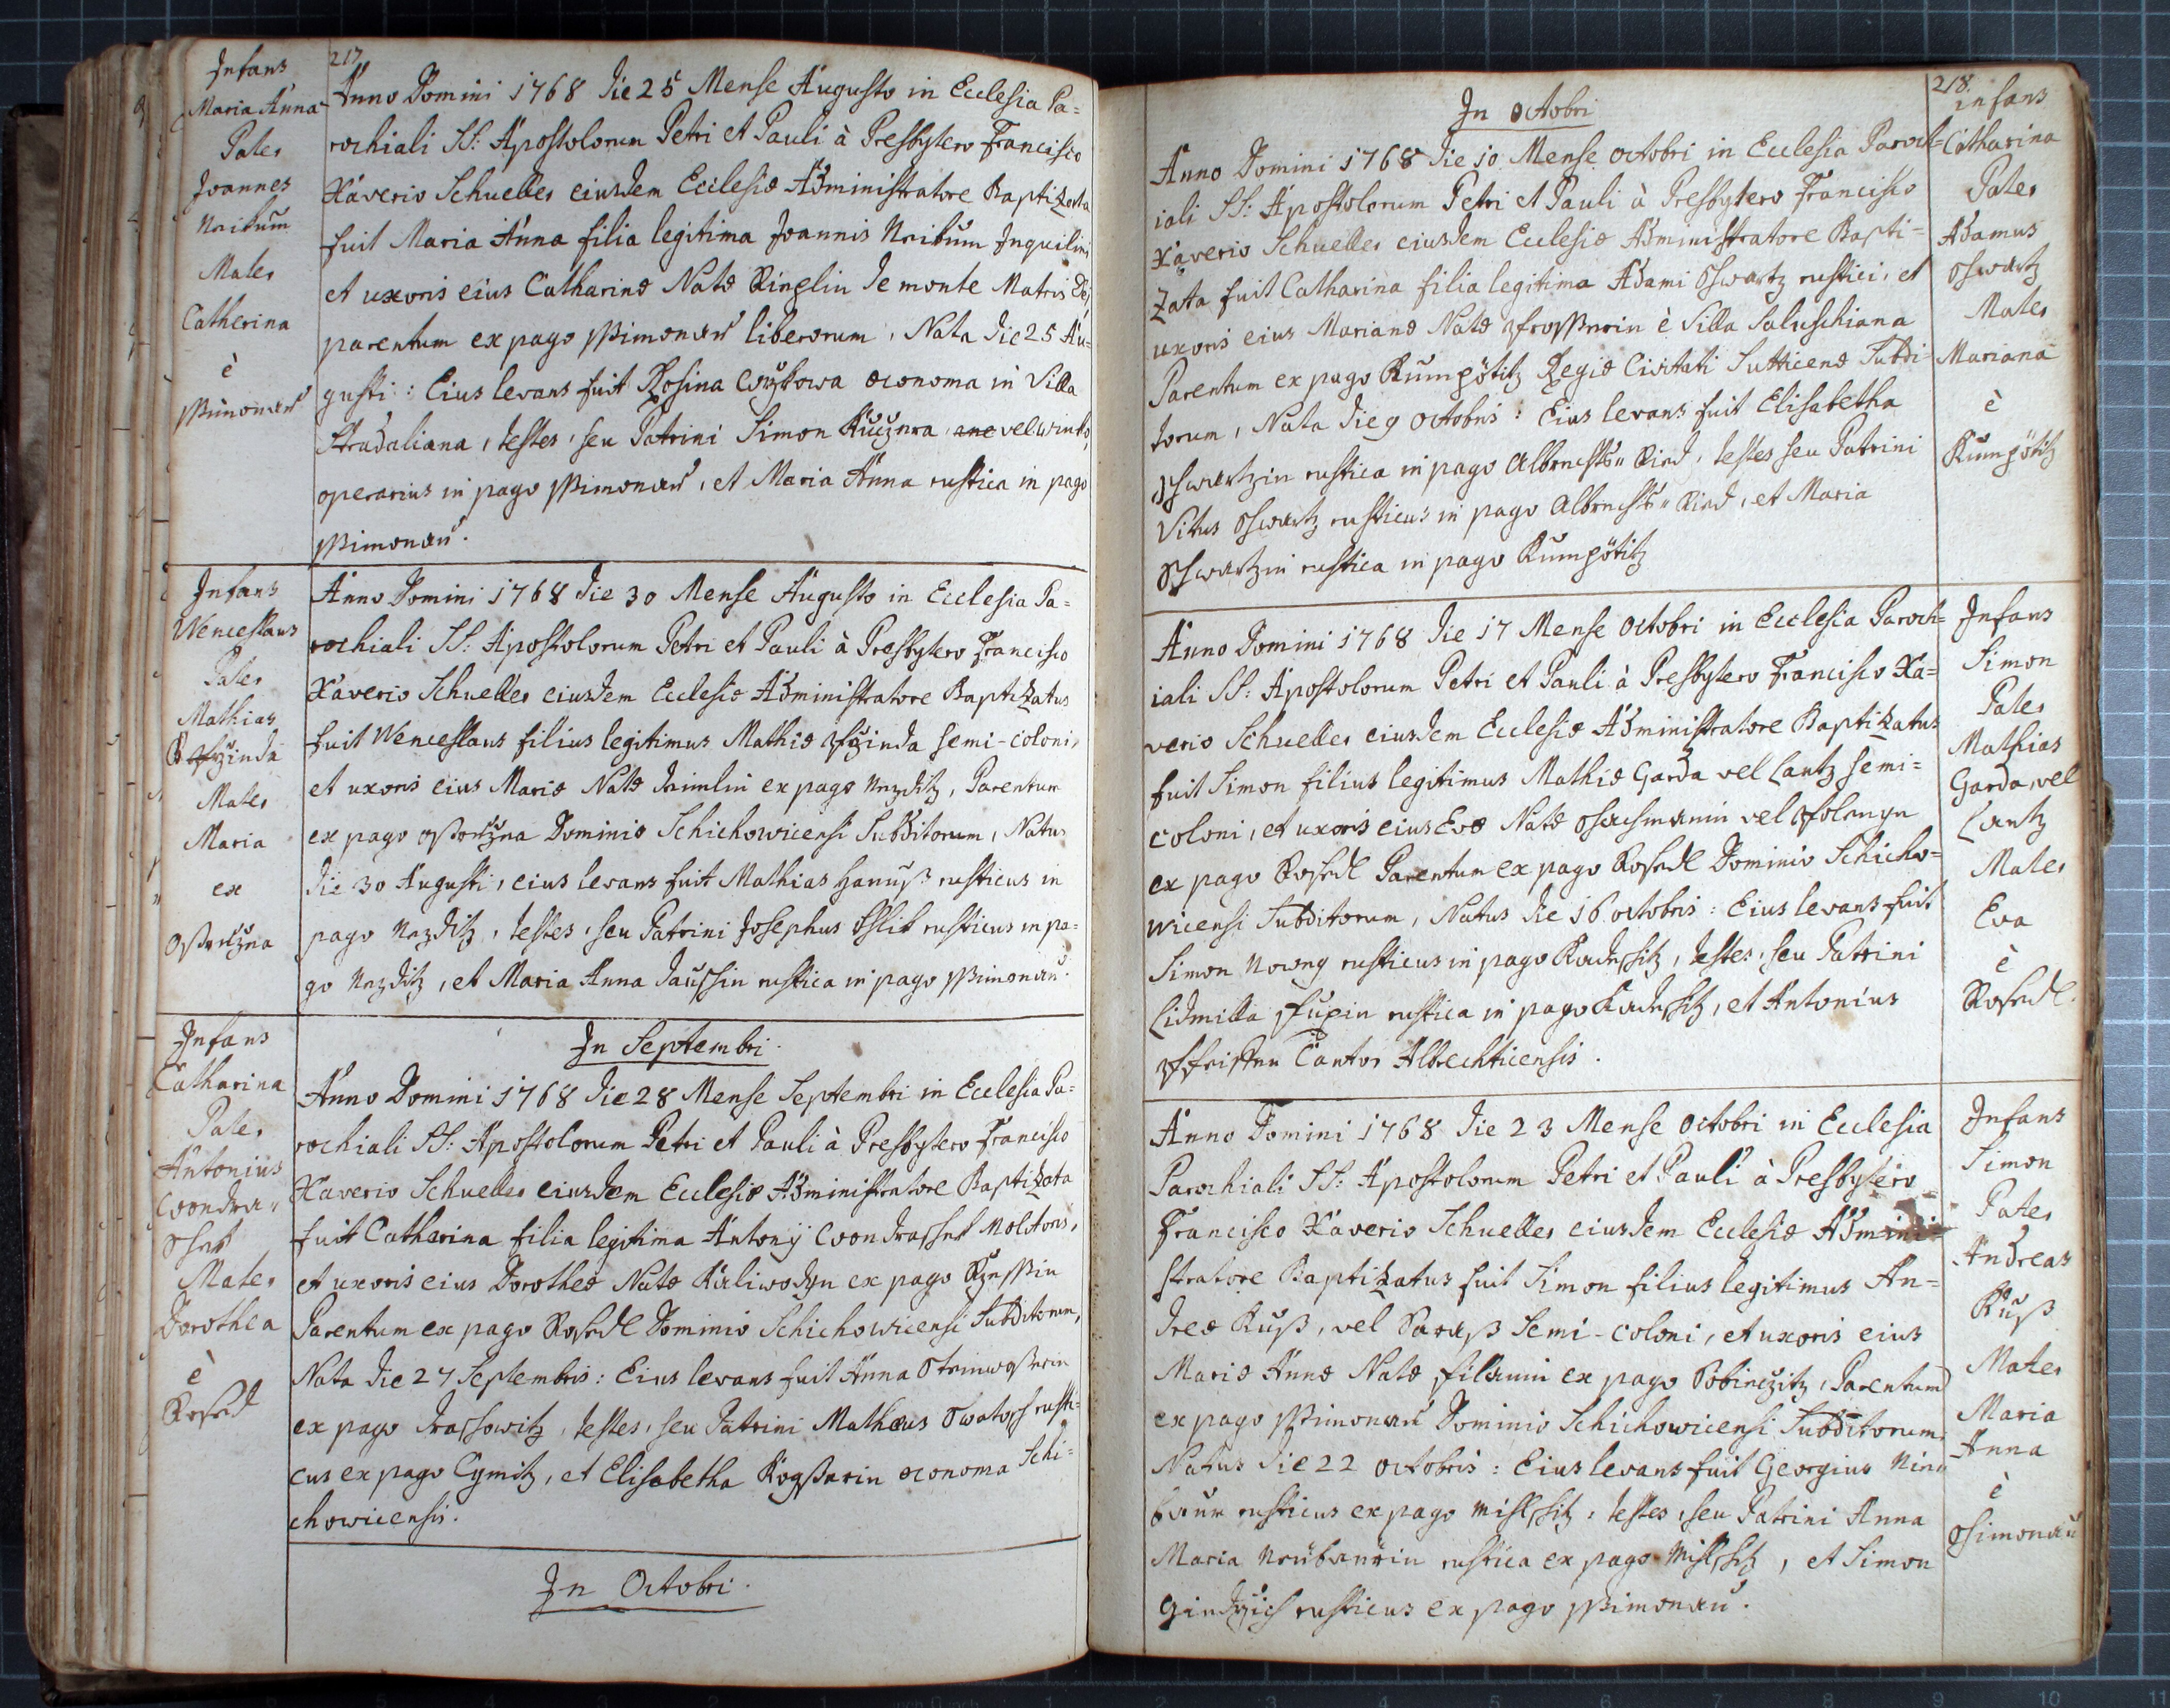 217
Infans
Maria Anna
Pater
Joannes
Mater
Catherina
è
Anno Domini 1768 die 25 Mense Augusto in Ecclesia Pa=
rochiali SS: Apostolorum Petri et Pauli à Presbytero Francisco
Xaverio Schueller eiusdem Ecclesiæ Administratore Baptizata
fuit Maria Anna filia legitima Joannis Inquilini
et uxoris eius Catharinæ Natæ Ringlin de monte Matris Dej
parentum ex pago liberorum, Nata die 25 Au=
gusti: Eius levans fuit Rosina oeconoma in Villa
Stradaliana, testes, seu Patrini Simon vel
operarius in pago et Maria Anna rustica in pago
Infans
Wenceslaus
Pater
Mathias
Mater
Maria
ex
Anno Domini 1768 die 30 Mense Augusto in Ecclesia Pa=
rochiali SS: Apostolorum Petri et Pauli à Presbytero Francisco
Xaverio Schueller eiusdem Ecclesiæ Administratore Baptizatus
fuit Wenceslaus filius legitimus Mathiæ semi-coloni,
et uxoris eius Mariæ Natæ ex pago Nezditz, Parentum
ex pago Dominio Schichowicensi Subditorum, Natus
die 30 Augusti, eius levans fuit Mathias Hanuß rusticus in
pago Nezditz, testes, seu Patrini Josephus rusticus in pa=
go Nezditz, et Maria Anna rustica in pago
Infans
Catharina
Pater
Antonius
Mater
Dorothea
è
Rosedl
In Septembri.
Anno Domini 1768 die 28 Mense Septembri in Ecclesia Pa=
rochiali SS: Apostolorum Petri et Pauli à Presbytero Francisco
Xaverio Schueller eiusdem Ecclesiæ Administratore Baptizata
fuit Catharina filia legitima Antonij Molitoris,
et uxoris eius Dorotheæ Natæ ex pago
Parentum ex pago Rosedl Dominio Schichowicensi Subditorum,
Nata die 27 Septembris: Eius levans fuit Anna
ex pago testes, seu Patrini Matheus rusti=
cus ex pago Cymitz, et Elisabetha oeconoma Schi=
chowicensis.
In Octobri.
218.
In Octobri
Anno Domini 1768 die 10 Mense Octobri in Ecclesia Paroch=
iali SS: Apostolorum Petri et Pauli à Presbytero Francisco
Xaverio Schueller eiusdem Ecclesiæ Administratore Bapti=
zata fuit Catharina filia legitima Adami rustici, et
uxoris eius Marianæ Natæ è Villa
Parentum ex pago Kumpötitz Regiæ Civitati Sutticenæ Subdi=
torum, Nata die 9 Octobris: Eius levans fuit Elisabetha
rustica in pago Albrechts-Ried, testes seu Patrini
Vitus rusticus in pago Albrechts-Ried, et Maria
rustica in pago Kumpötitz
infans
Catharina
Pater
Adamus
Mater
Mariana
è
Kumpötitz
Anno Domini 1768 die 17 Mense Octobri in Ecclesia Paroch=
iali SS: Apostolorum Petri et Pauli à Presbytero Francisco Xa=
verio Schueller eiusdem Ecclesiæ Administratore Baptizatus
fuit Simon filius legitimus Mathiæ Garda vel Lantz semi=
coloni, et uxoris eius Evæ Natæ vel
ex pago Rosedl Parentum ex pago Rosedl Dominio Schicho=
wicensi Subditorum, Natus die 16 octobris: Eius levans fuit
Simon Nowey rusticus in pago testes, seu Patrini
Lidmilla rustica in pago et Antonius
Cantor Albrechticensis.
Infans
Simon
Pater
Mathias
Garda, vel
Lantz
Mater
Eva
è
Rosedl.
Anno Domini 1768 die 23 Mense Octobri in Ecclesia
Parochiali SS: Apostolorum Petri et Pauli à Presbytero
Francisco Xaverio Schueller eiusdem Ecclesiæ Admini=
stratore Baptizatus fuit Simon filius legitimus An=
dreæ Kuß, vel Semi-coloni, et uxoris eius
Mariæ Annæ Natæ ex pago Parentum
ex pago Dominio Schichowicensi Subditorum,
Natus die 22 octobris: Eius levans fuit Georgius
rusticus ex pago testes, seu Patrini Anna
Maria rustica ex pago et Simon
rusticus ex pago
Infans
Simon
Pater
Andreas
Kuß
Mater
Maria
Anna
è